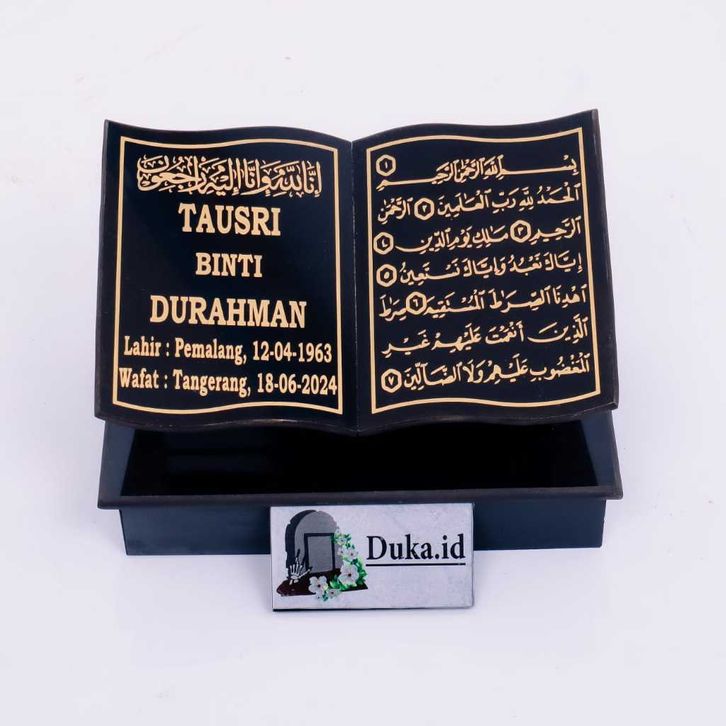 إنا لله وإنا إليه راجعون
TAUSRI
BINTI
DURAHMAN
Lahir : Pemalang, 12-04-1963
Wafat : Tangerang, 18-06-2024
بِسْمِ اللَّهِ الرَّحْمَٰنِ الرَّحِيمِ ١
الْحَمْدُ لِلَّهِ رَبِّ الْعَالَمِينَ ٢ الرَّحْمَٰنِ
الرَّحِيمِ ٣ مَالِكِ يَوْمِ الدِّينِ ٤
إِيَّاكَ نَعْبُدُ وَإِيَّاكَ نَسْتَعِينُ ٥
اهْدِنَا الصِّرَاطَ الْمُسْتَقِيمَ ٦ صِرَاطَ
الَّذِينَ أَنْعَمْتَ عَلَيْهِمْ غَيْرِ
الْمَغْضُوبِ عَلَيْهِمْ وَلَا الضَّالِّينَ ٧
Duka.id